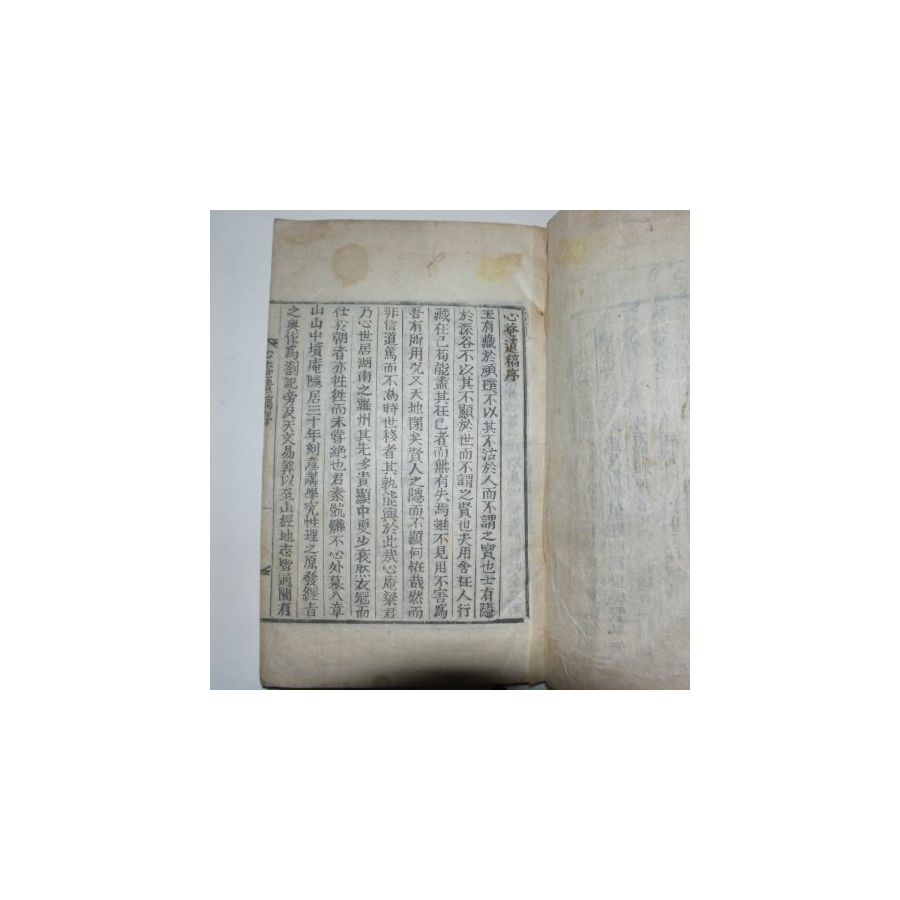 心菴遺稿序
玉有藏於頑璞不以其不沽於人而不謂之寶也士有隱
於深谷不以其不顯於世而不謂之賢也夫用舍在人行
藏在己苟能盡其在已者而無有失焉雖不見用不害爲
吾有所用况又天地閉矣賢人之隱而不顯何恠哉然而
非信道篤而不爲時世移者其孰能與於此哉心庵梁君
乃心世居湖南之羅州其先多貴顯中更少衰然衣冠而
仕於朝者亦徃徃而未甞絶也君素骯髒不心外慕入章
山山中墳庵隱居三十年刻意講學究性理之原發經旨
之奧作爲劄記旁及天文易筭以至山經地志皆通關有
心菴遺稿序